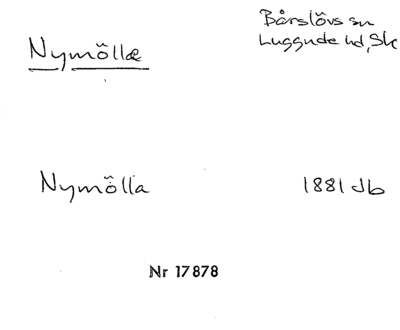 Bårslövs sn
Luggude hd, Sk
Nymölla
Nymölla 1881 db
Nr 17878